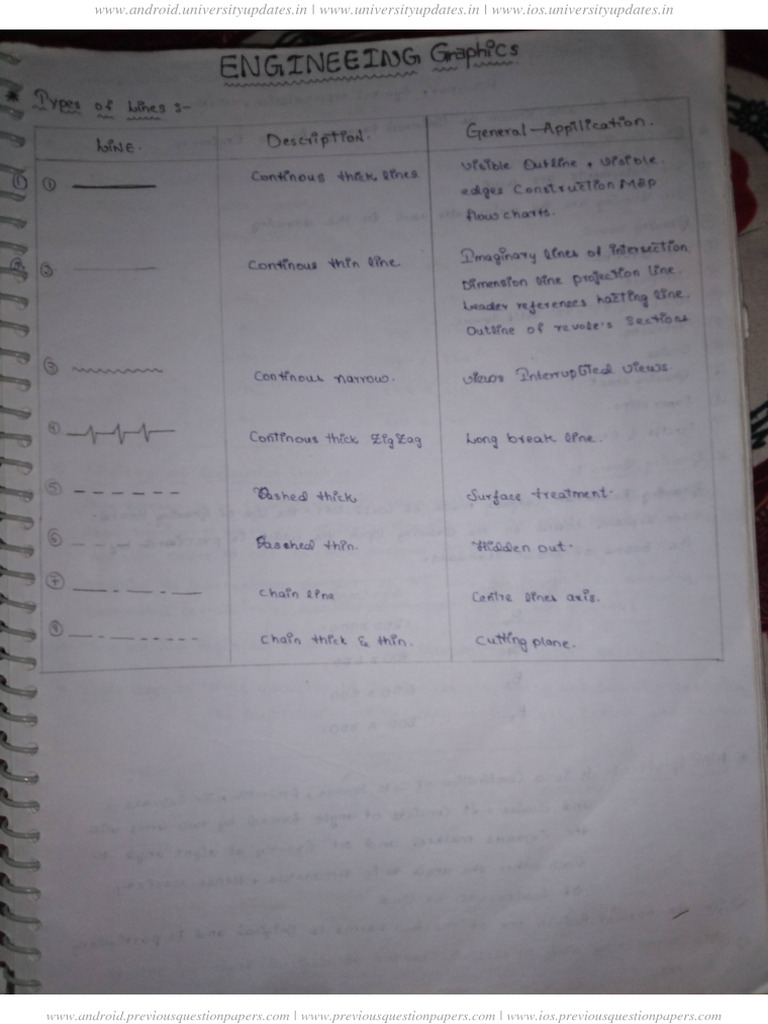 www.android.universityupdates.in | www.universityupdates.in | www.ios.universityupdates.in
ENGINEEING Graphics
* Types of Lines :-
LINE. Description. General-Appilication.
① ① Continous thick lines visible Outline, visible
edges Construction Map
flow charts.
② ② Continous thin line. Imaginary lines of intersection
Dimension line projection line.
Leader references line.
Outline of Sections
③ Continous narrow. views Interrupted views.
④ Continous thick ZigZag Long break line.
⑤ Dashed thick Surface treatment.
⑥ Dasched thin. Hidden out.
⑦ Chain line Centre lines axis.
⑧ Chain thick & thin. Cutting plane.
www.android.previousquestionpapers.com | www.previousquestionpapers.com | www.ios.previousquestionpapers.com